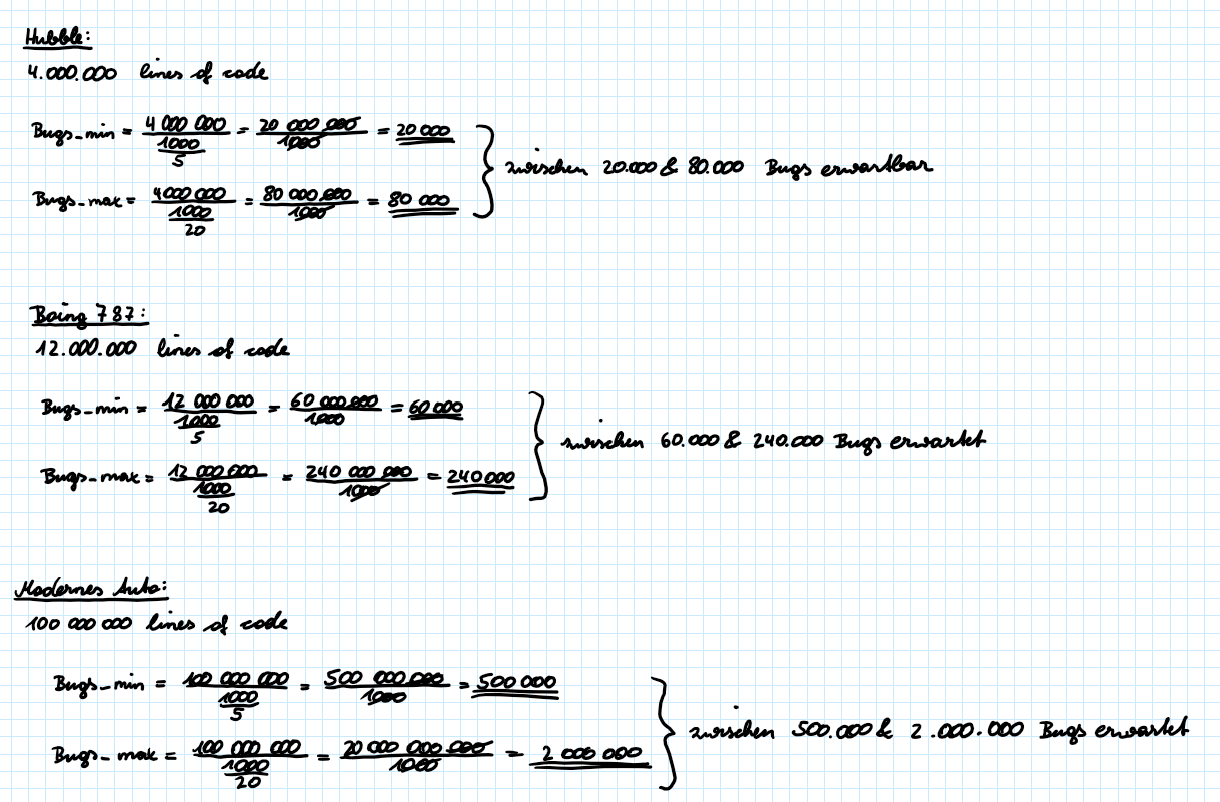 Hubble:
4.000.000 lines of code
Bugs_min = 4 000 000 / (1000 / 5) = 20 000 000 / 1000 = 20 000
Bugs_max = 4 000 000 / (1000 / 20) = 80 000 000 / 1000 = 80 000
zwischen 20.000 & 80.000 Bugs erwartbar
Boing 787:
12.000.000 lines of code
Bugs_min = 12 000 000 / (1000 / 5) = 60 000 000 / 1000 = 60 000
Bugs_max = 12 000 000 / (1000 / 20) = 240 000 000 / 1000 = 240 000
zwischen 60.000 & 240.000 Bugs erwartet
Modernes Auto:
100 000 000 lines of code
Bugs_min = 100 000 000 / (1000 / 5) = 500 000 000 / 1000 = 500 000
Bugs_max = 100 000 000 / (1000 / 20) = 20 000 000 000 / 1000 = 2 000 000
zwischen 500.000 & 2.000.000 Bugs erwartet